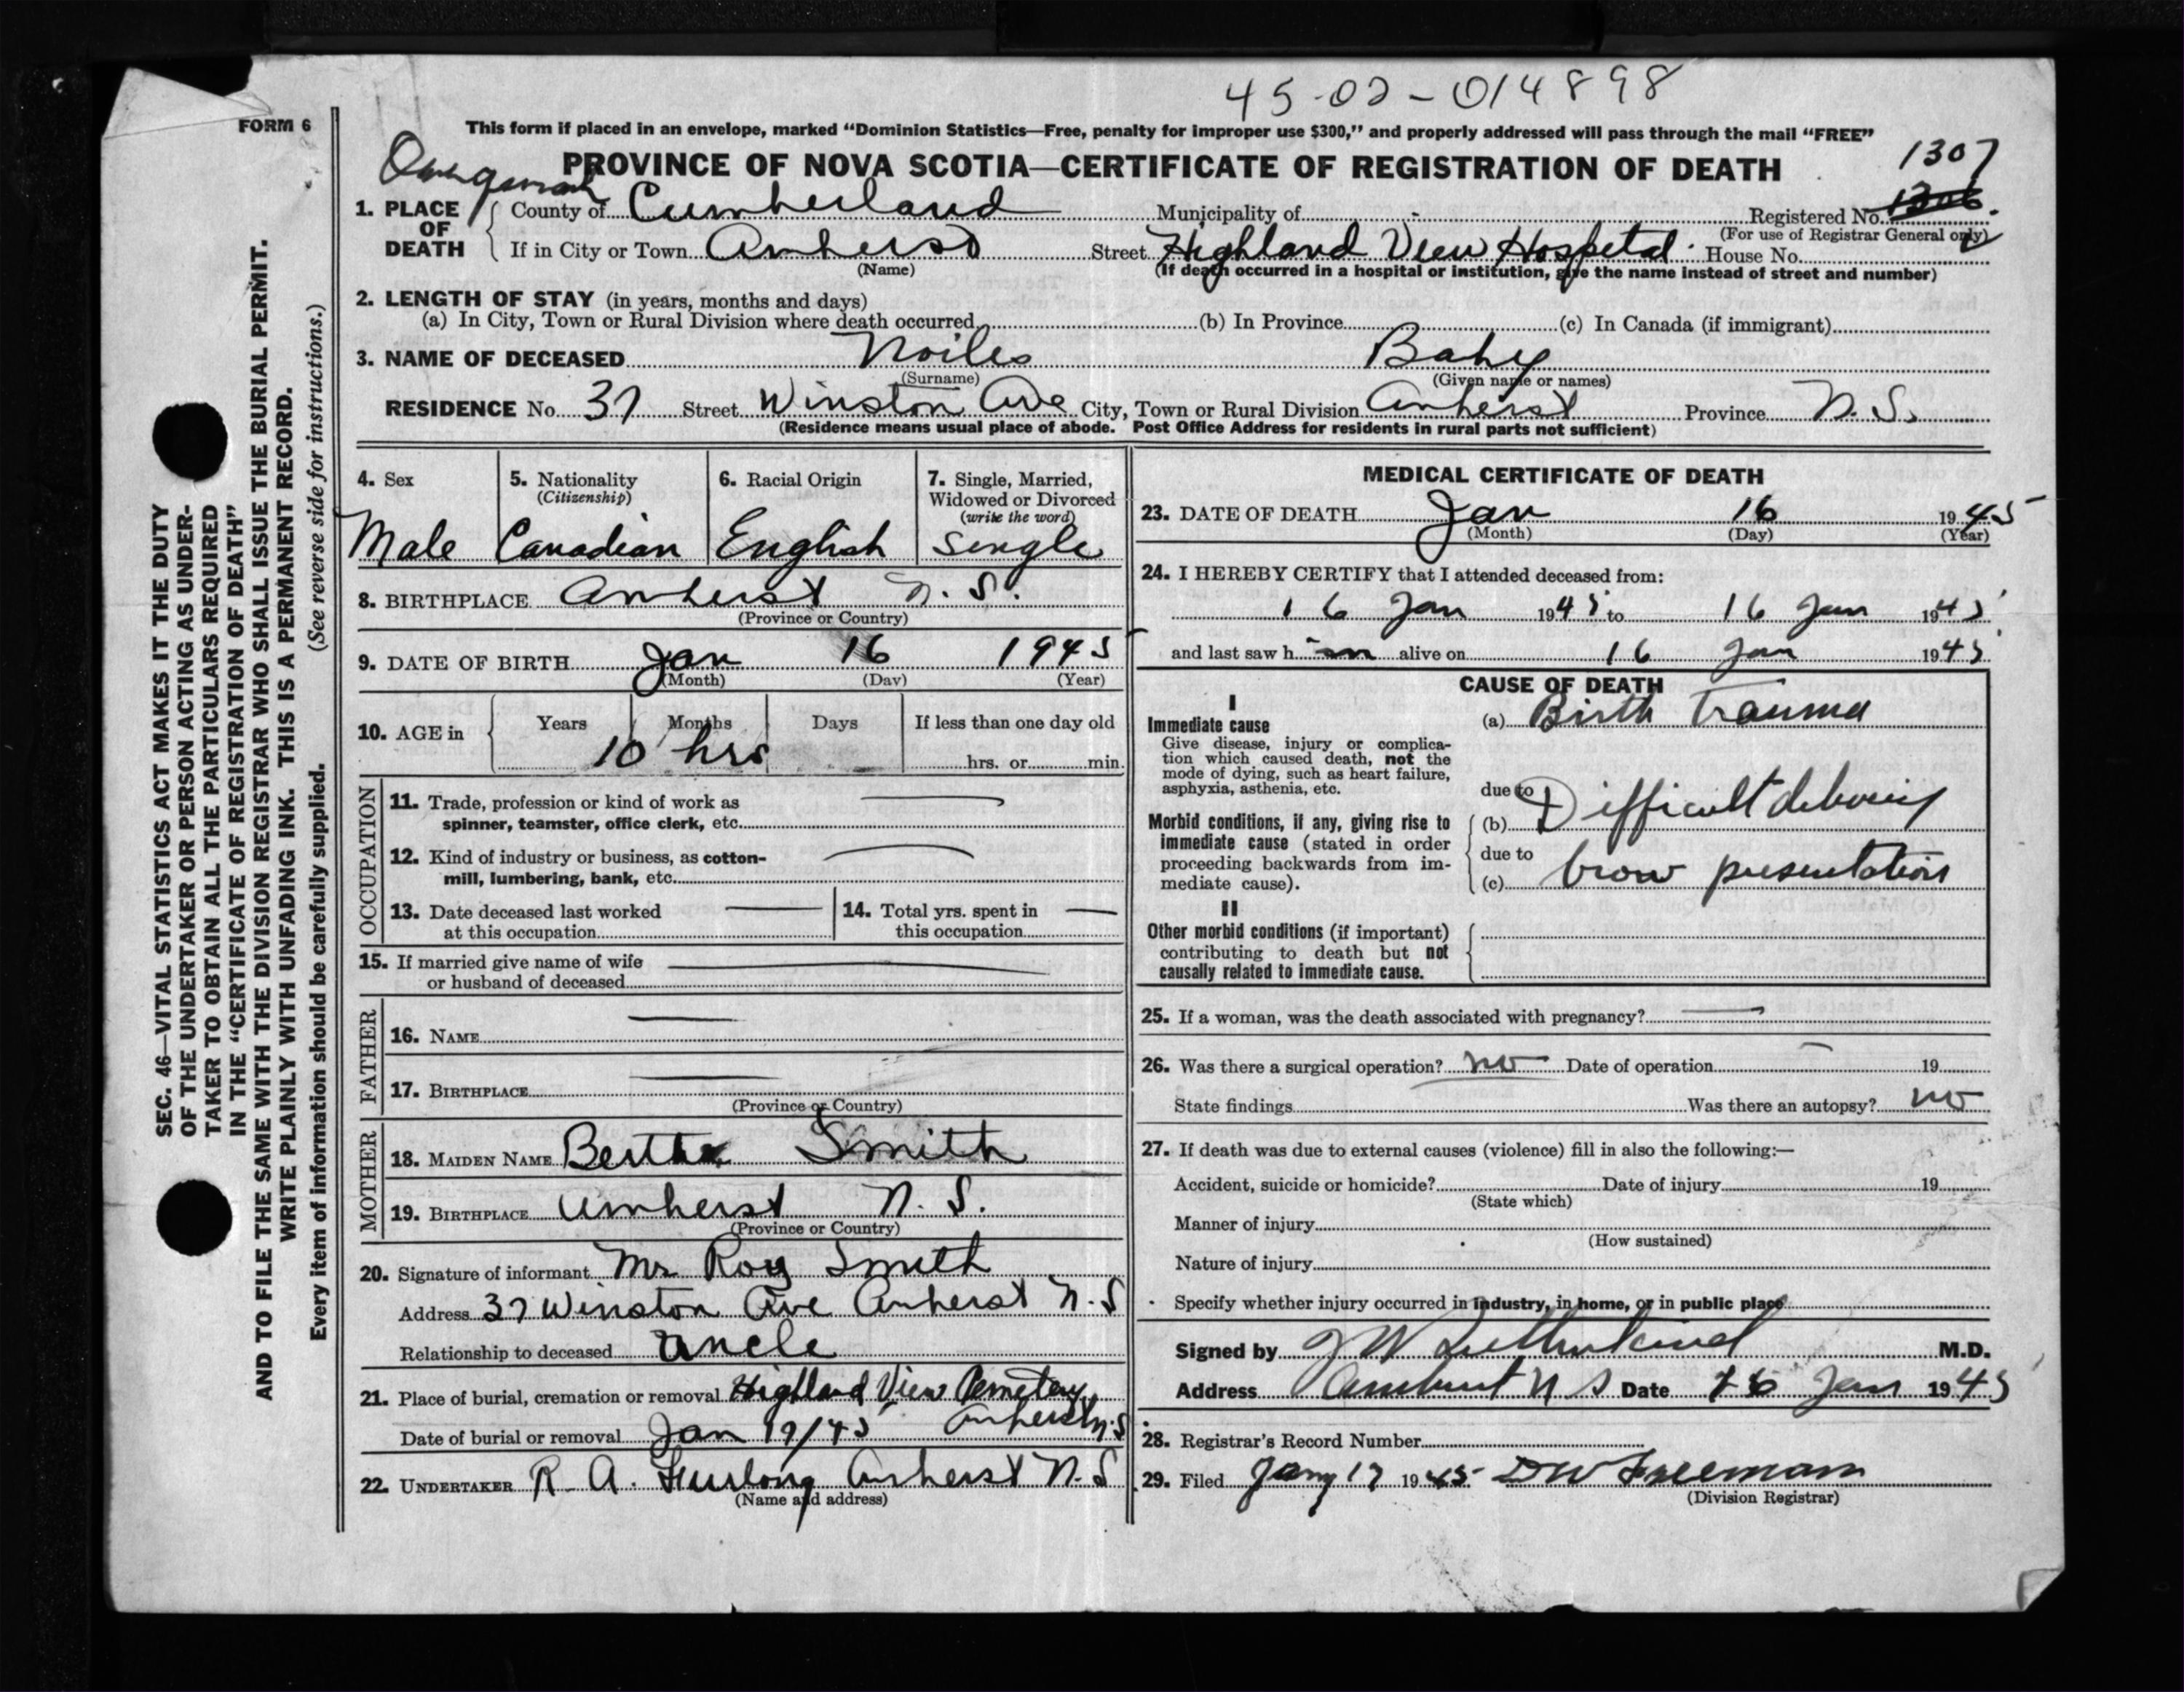 45-02-014898
FORM 6
This form if placed in an envelope, marked “Dominion Statistics—Free, penalty for improper use $300,” and properly addressed will pass through the mail “FREE”
PROVINCE OF NOVA SCOTIA—CERTIFICATE OF REGISTRATION OF DEATH
1307
1. PLACE OF DEATH
County of Cumberland Municipality of - Registered No. 1306
(For use of Registrar General only)
If in City or Town Amherst Street Highland View Hospital House No.
(Name) (If death occurred in a hospital or institution, give the name instead of street and number)
2. LENGTH OF STAY (in years, months and days)
(a) In City, Town or Rural Division where death occurred (b) In Province (c) In Canada (if immigrant)
3. NAME OF DECEASED Noiles Baby
(Surname) (Given name or names)
RESIDENCE No. 37 Street Winston Ave City, Town or Rural Division Amherst Province N. S.
(Residence means usual place of abode. Post Office Address for residents in rural parts not sufficient)
4. Sex
Male
5. Nationality
(Citizenship)
Canadian
6. Racial Origin
English
7. Single, Married,
Widowed or Divorced
(write the word)
Single
8. BIRTHPLACE Amherst N. S.
(Province or Country)
9. DATE OF BIRTH Jan 16 1945
(Month) (Day) (Year)
10. AGE in Years Months Days If less than one day old
10 hrs hrs. or min.
OCCUPATION
11. Trade, profession or kind of work as
spinner, teamster, office clerk, etc. —
12. Kind of industry or business, as cotton-
mill, lumbering, bank, etc. —
13. Date deceased last worked
at this occupation —
14. Total yrs. spent in
this occupation —
15. If married give name of wife
or husband of deceased —
FATHER
16. NAME —
17. BIRTHPLACE —
(Province or Country)
MOTHER
18. MAIDEN NAME Bertha Smith
19. BIRTHPLACE Amherst N. S.
(Province or Country)
20. Signature of informant Mr Roy Smith
Address 37 Winston Ave Amherst N. S
Relationship to deceased uncle
21. Place of burial, cremation or removal Highland View Cemetery
Amherst N.S
Date of burial or removal Jan 19/45
22. UNDERTAKER R. A. Furlong Amherst N. S
(Name and address)
MEDICAL CERTIFICATE OF DEATH
23. DATE OF DEATH Jan 16 1945
(Month) (Day) (Year)
24. I HEREBY CERTIFY that I attended deceased from:
16 Jan 1945 to 16 Jan 1945
and last saw h im alive on 16 Jan 1945
CAUSE OF DEATH
I
Immediate cause
Give disease, injury or complica-
tion which caused death, not the
mode of dying, such as heart failure,
asphyxia, asthenia, etc.
(a) Birth Trauma
due to
Morbid conditions, if any, giving rise to
immediate cause (stated in order
proceeding backwards from im-
mediate cause).
(b) Difficult delivery
due to
(c) brow presentation
II
Other morbid conditions (if important)
contributing to death but not
causally related to immediate cause.
25. If a woman, was the death associated with pregnancy? —
26. Was there a surgical operation? no Date of operation — 19
State findings Was there an autopsy? no
27. If death was due to external causes (violence) fill in also the following:—
Accident, suicide or homicide? Date of injury 19
(State which)
Manner of injury
(How sustained)
Nature of injury
Specify whether injury occurred in industry, in home, or in public place
Signed by J W M.D.
Address Amherst N S Date 16 Jan 1945
28. Registrar's Record Number
29. Filed Jany 17 1945 D W Freeman
(Division Registrar)
SEC. 46—VITAL STATISTICS ACT MAKES IT THE DUTY
OF THE UNDERTAKER OR PERSON ACTING AS UNDER-
TAKER TO OBTAIN ALL THE PARTICULARS REQUIRED
IN THE “CERTIFICATE OF REGISTRATION OF DEATH”
AND TO FILE THE SAME WITH THE DIVISION REGISTRAR WHO SHALL ISSUE THE BURIAL PERMIT.
WRITE PLAINLY WITH UNFADING INK. THIS IS A PERMANENT RECORD.
Every item of information should be carefully supplied. (See reverse side for instructions.)